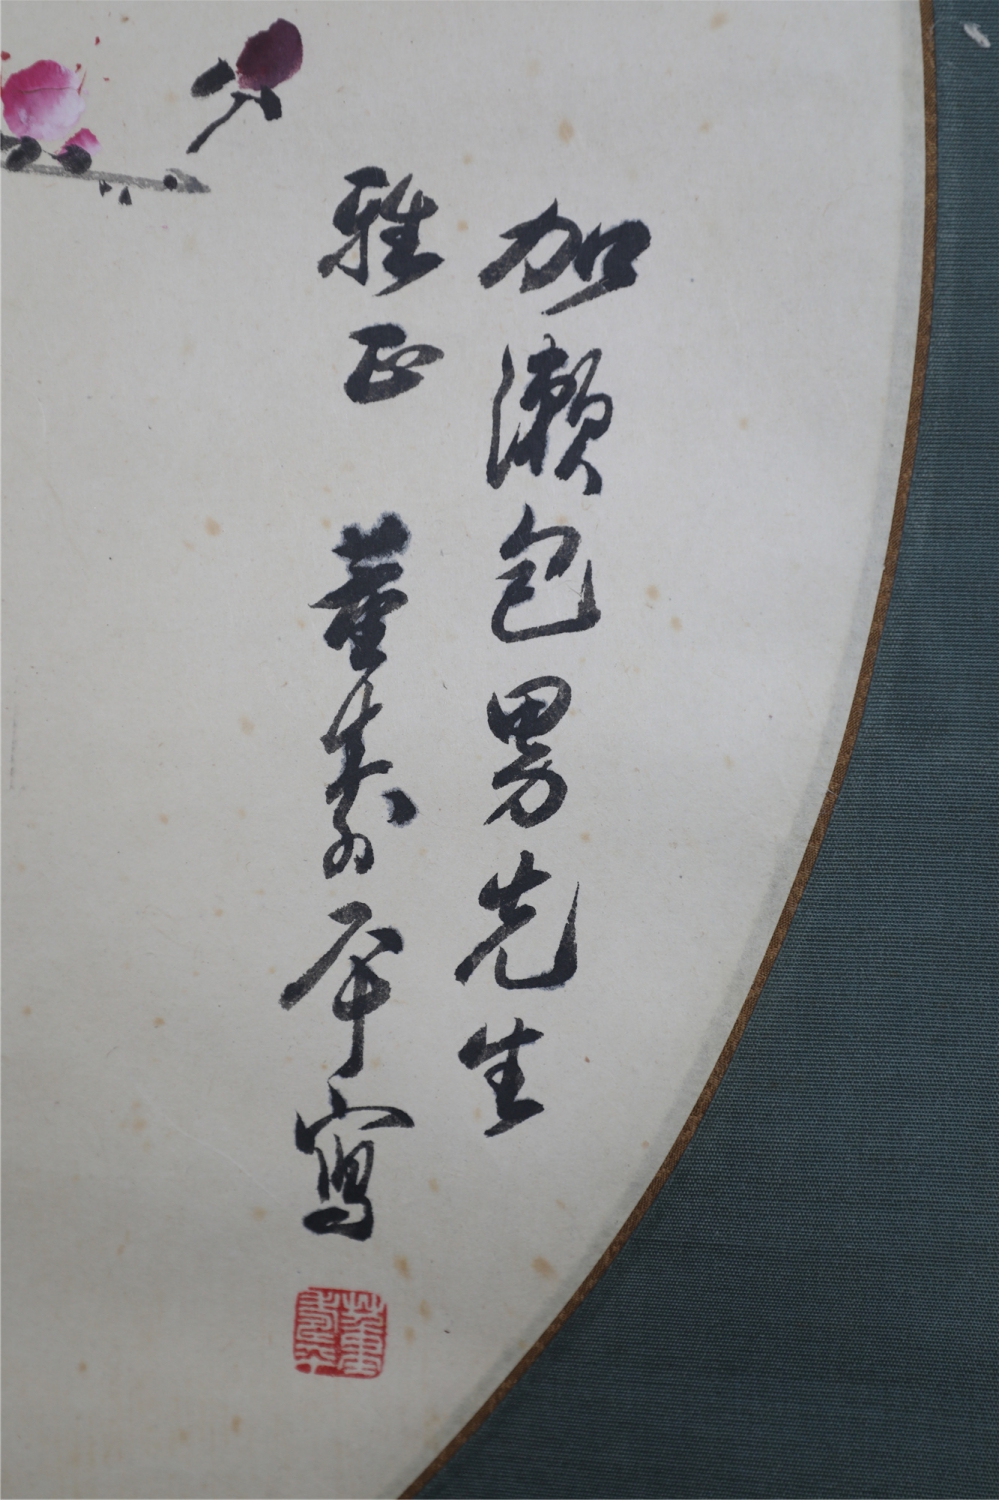 加瀨包男先生
雅正 董壽平寫
董壽平